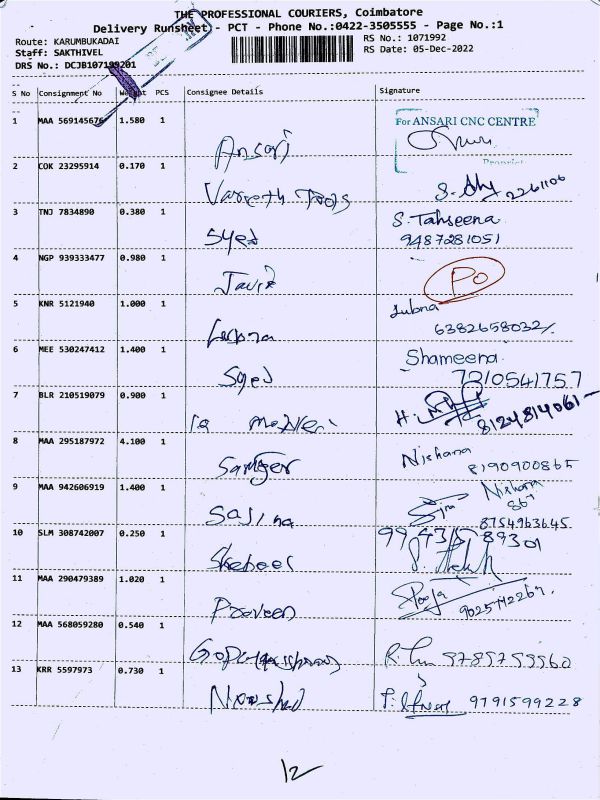 THE PROFESSIONAL COURIERS, Coimbatore
Delivery Runsheet - PCT - Phone No.:0422-3505555 - Page No.:1
Route: KARUMBUKADAI
RS No.: 1071992
Staff: SAKTHIVEL
RS Date: 05-Dec-2022
DRS No.: DCJB107199201
S No Consignment No Weight PCS Consignee Details Signature
1 MAA 569145676 1.580 1 Ansari For ANSARI CNC CENTRE
2 COK 23295914 0.170 1 Tools
3 TNJ 7834890 0.380 1 Syed S. Tahseena
9487281051
4 NGP 939333477 0.980 1 Javir PO
5 KNR 5121940 1.000 1 Lubna Lubna
6382658032
6 MEE 530247412 1.400 1 Syed Shameena
7210541757
7 BLR 210519079 0.900 1 8124814061
8 MAA 295187972 4.100 1 Sameer Nishana
8190900865
9 MAA 942606919 1.400 1 Sasina Nishana
8754963645
10 SLM 308742007 0.250 1 Shebeel
11 MAA 290479389 1.020 1 Praveen Pooja
12 MAA 568059280 0.540 1
13 KRR 5597973 0.730 1 Nowshad 9791599228
12